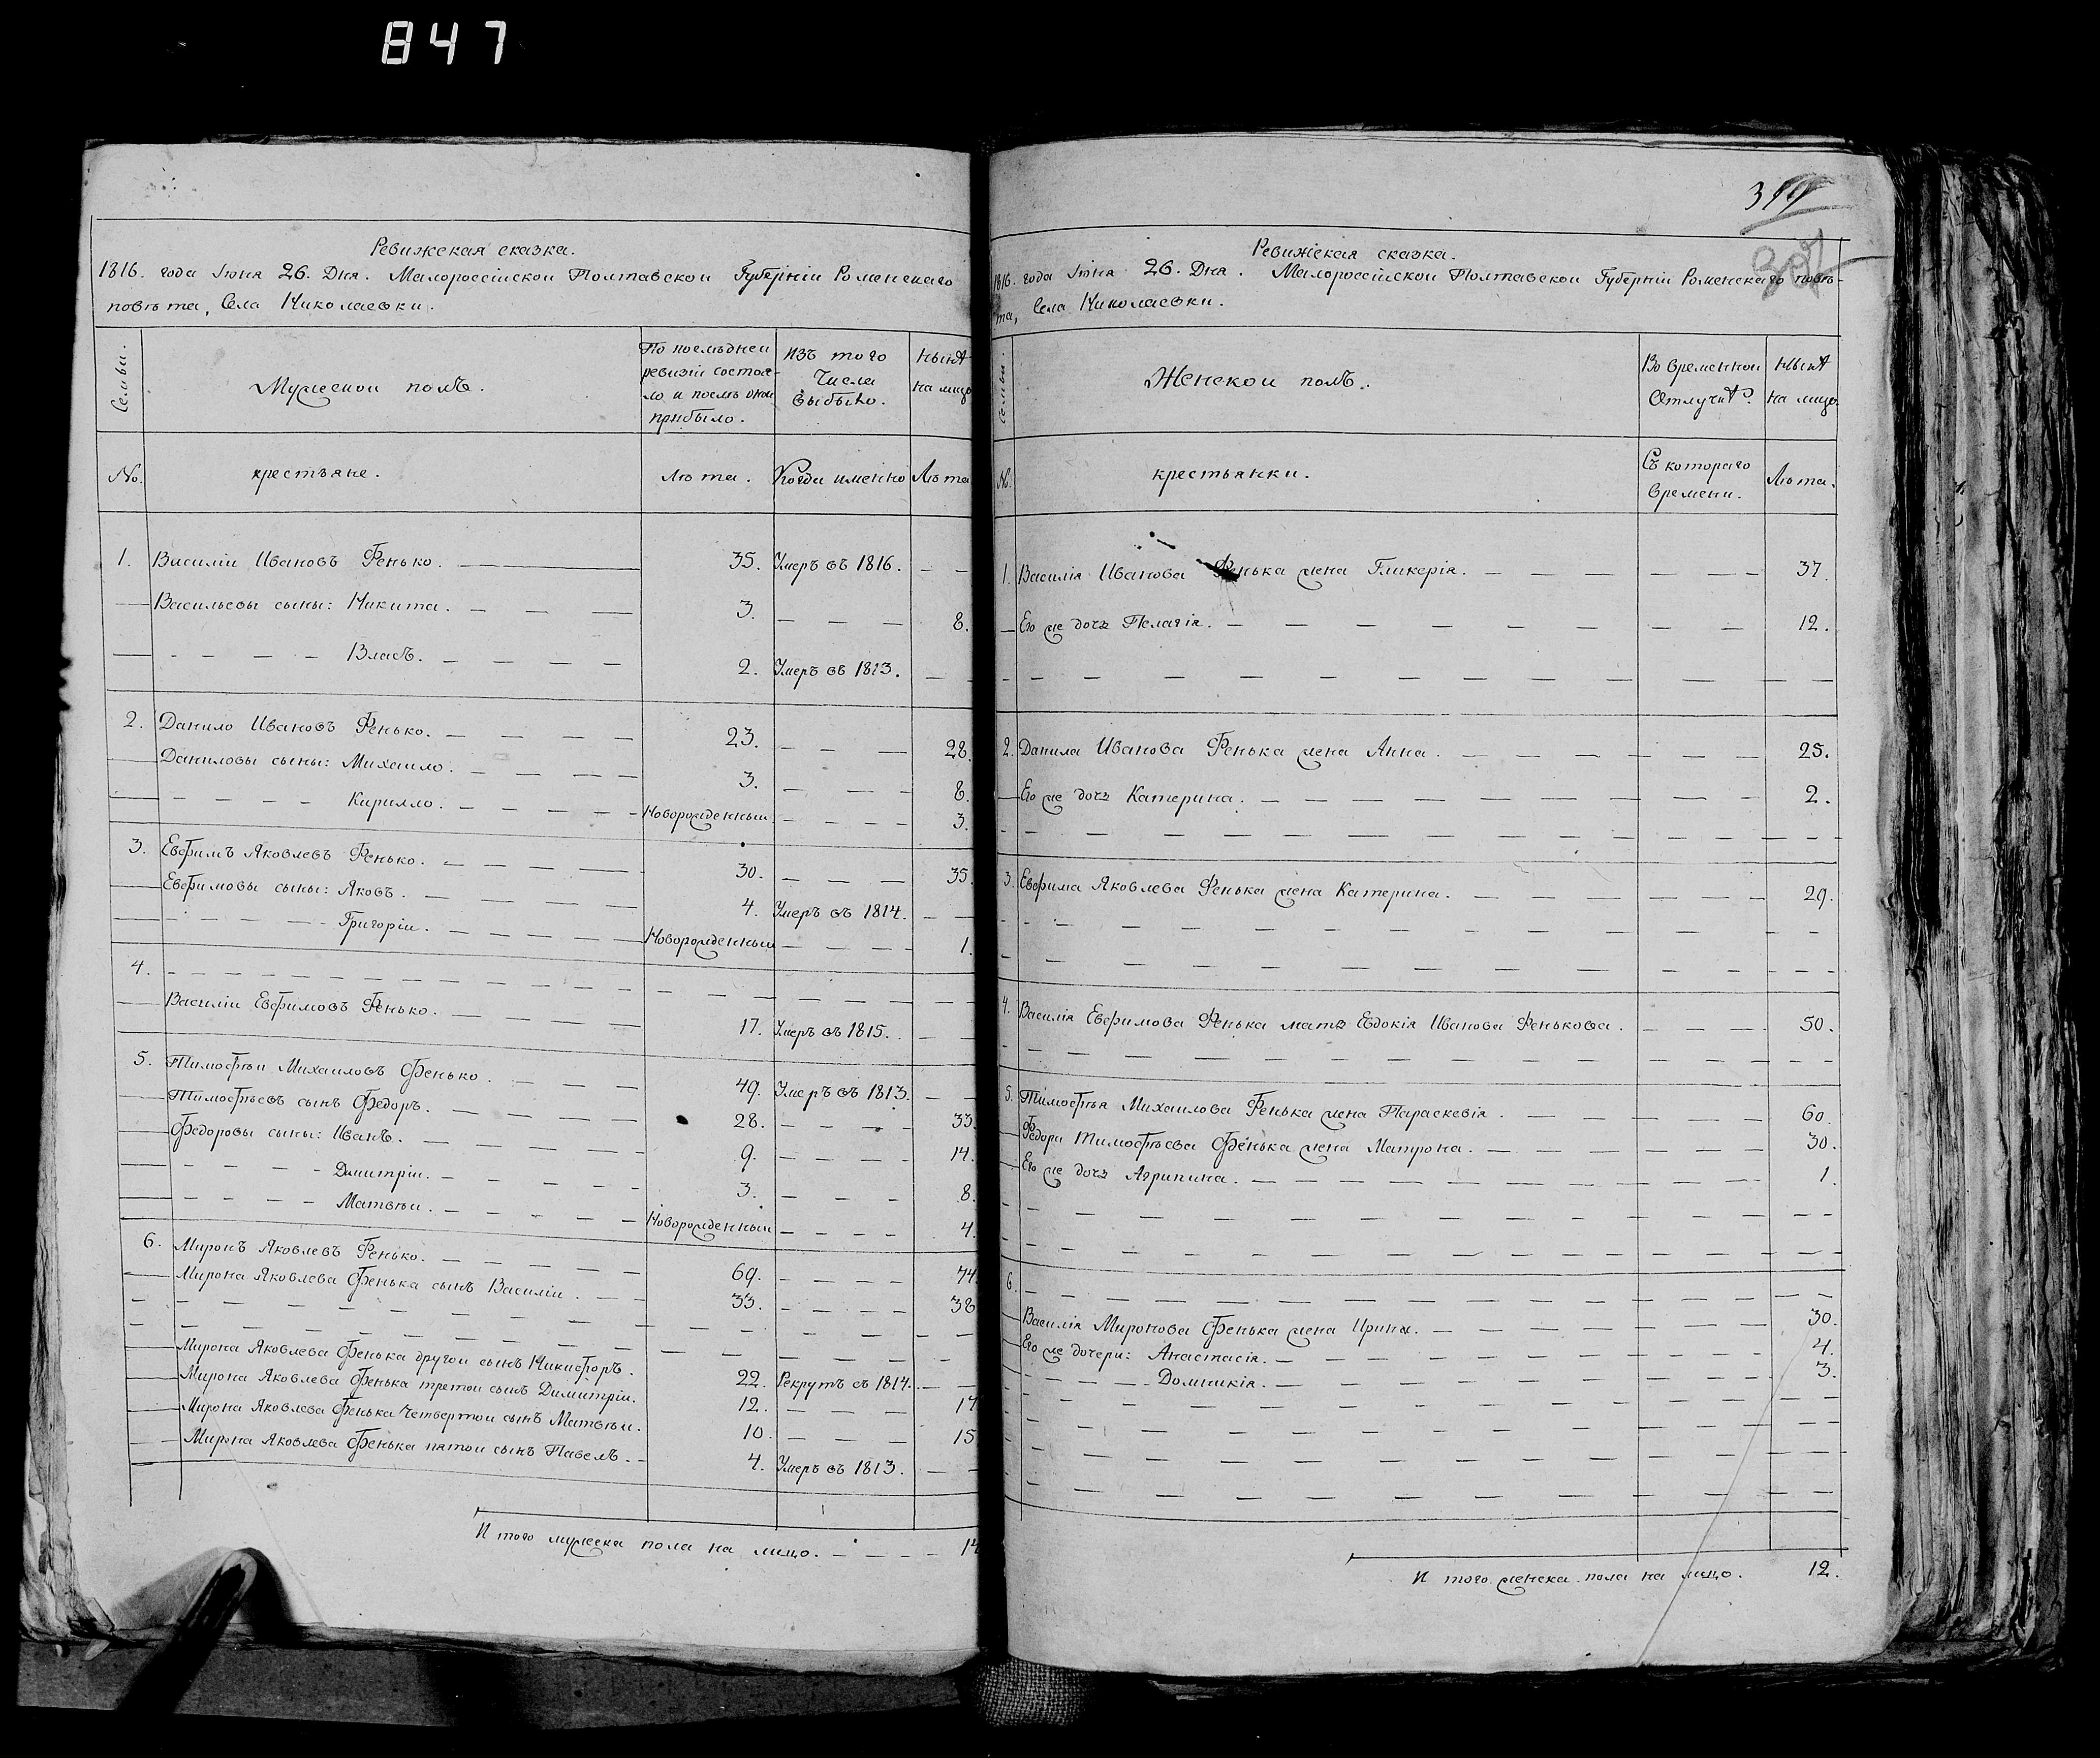 847
Ревижская сказка.
1816. года Іюня 26. Дня. Малороссійской Полтавской Губерніи Роменскаго
повѣта, Села Николаевки.
Семьи.
Мужеской полъ.
По последнеи
ревизіи состоя-
ло и послѣ онои
прибыло.
Изъ того
числа
выбыло.
Нынѣ
на лицо
No.
крестьяне.
Лѣта.
Когда именно
Лѣта
1. Василіи Ивановъ Фенько. 35. Умеръ въ 1816.
Васильевы сыны: Никита. 3. 8.
Власъ. 2. Умеръ въ 1813.
2. Данило Ивановъ Фенько. 23. 28.
Даниловы сыны: Михаило. 3. 8.
Кирилло. Новорожденныи 3.
3. Евфимъ Яковлевъ Фенько. 30. 35.
Евфимовы сыны: Яковъ. 4. Умеръ въ 1814.
Григоріи. Новорожденныи 1.
4.
Василіи Евфимовъ Фенько. 17. Умеръ въ 1815.
5. Тимофѣи Михаиловъ Фенько. 49. Умеръ въ 1813.
Тимофѣевъ сынъ Федоръ. 28. 33.
Федоровы сыны: Иванъ. 9. 14.
Димитріи. 3. 8.
Матвѣи. Новорожденныи 4.
6. Миронъ Яковлевъ Фенько. 69. 74.
Мирона Яковлева Фенька сынъ Василіи. 33. 38
Мирона Яковлева Фенька другои сынъ Никифоръ. 22. Рекрутъ съ 1814.
Мирона Яковлева Фенька третои сынъ Димитріи. 12. 17
Мирона Яковлева Фенька четвертои сынъ Матвѣи. 10. 15
Мирона Яковлева Фенька пятои сынъ Павелъ. 4. Умеръ въ 1813.
И того мужеска пола на лицо. 14
319
Ревижская сказка.
1816. года Іюня 26. Дня. Малороссійской Полтавской Губерніи Роменскаго повѣ-
та, Села Николаевки.
Семьи.
Женской полъ.
Во временнои
отлучкѣ.
Нынѣ
на лицо.
No.
крестьянки.
Съ котораго
времени.
Лѣта.
1. Василія Иванова Фенька жена Гликерія. 37.
Его же дочь Пелагія. 12.
2. Данила Иванова Фенька жена Анна. 25.
Его же дочь Катерина. 2.
3. Евфима Яковлева Фенька жена Катерина. 29.
4. Василія Евфимова Фенька мать Евдокія Иванова Фенькова. 50.
5. Тимофѣя Михаилова Фенька жена Параскевія. 60.
Федора Тимофѣева Фенька жена Матрона. 30.
Его же дочь Агрипина. 1.
6.
Василія Миронова Фенька жена Ирина. 30.
Его же дочери: Анастасія. 4.
Домникія. 3.
И того женска пола на лицо. 12.